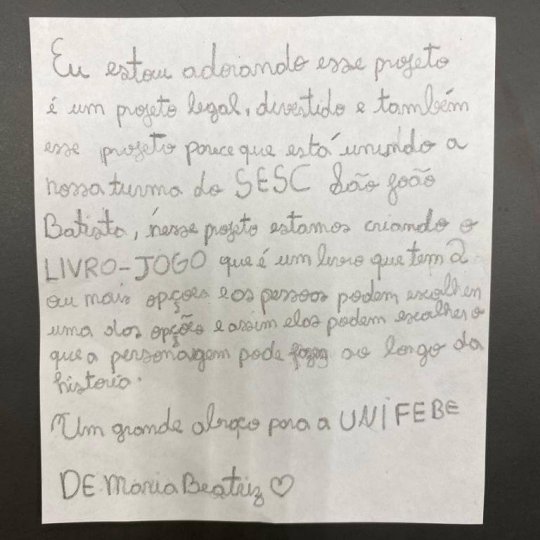 Eu estou adorando esse projeto
é um projeto legal, divertido e também
esse projeto parece que está unindo a
nossa turma do SESC São João
Batista, nesse projeto estamos criando o
LIVRO-JOGO que é um livro que tem 2
ou mais opções e as pessoas podem escolher
uma das opção e assim elas podem escolher o
que a personagem pode fazer ao longo da
historia.
Um grande abraço para a UNIFEBE
DE Maria Beatriz ♡